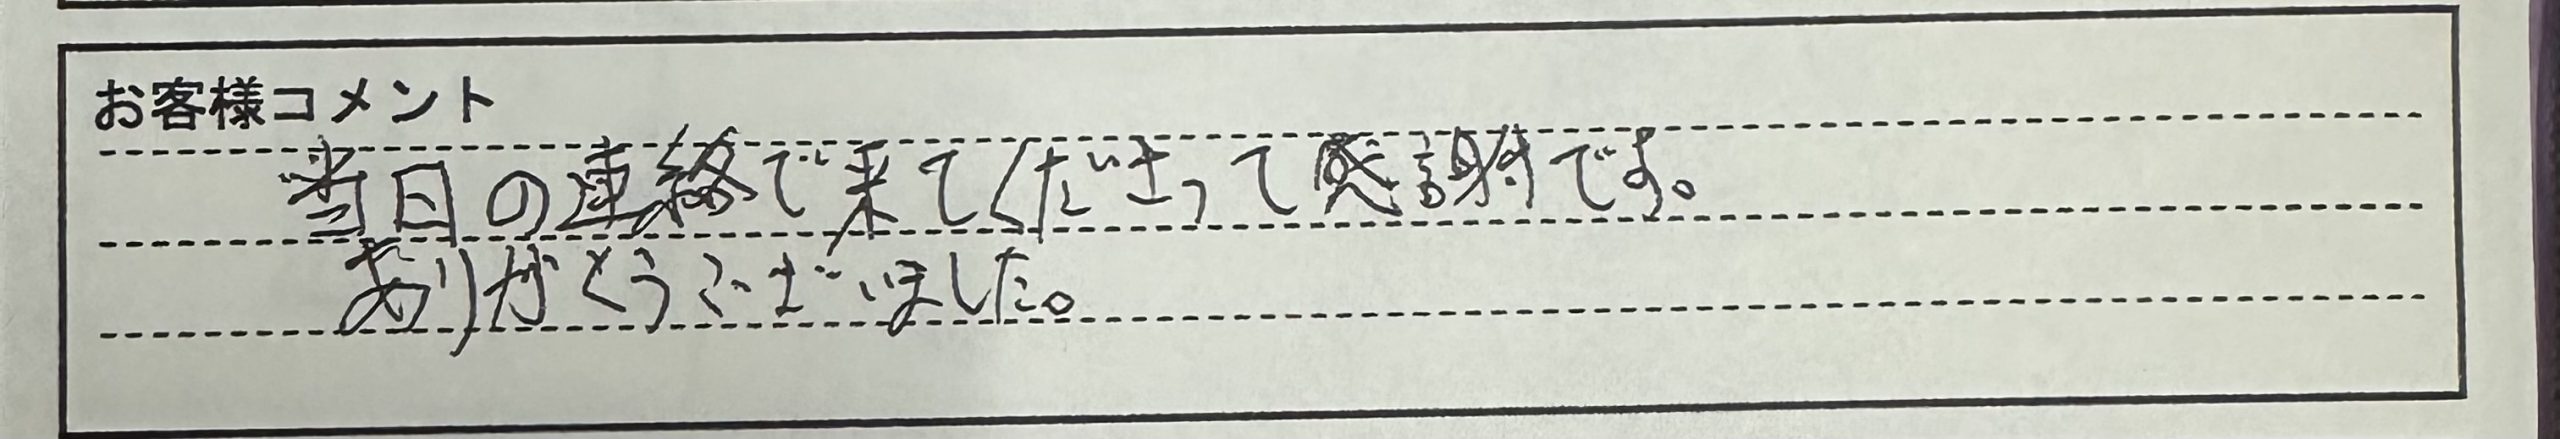 お客様コメント
当日の連絡で来てくださって感謝です。
ありがとうございました。